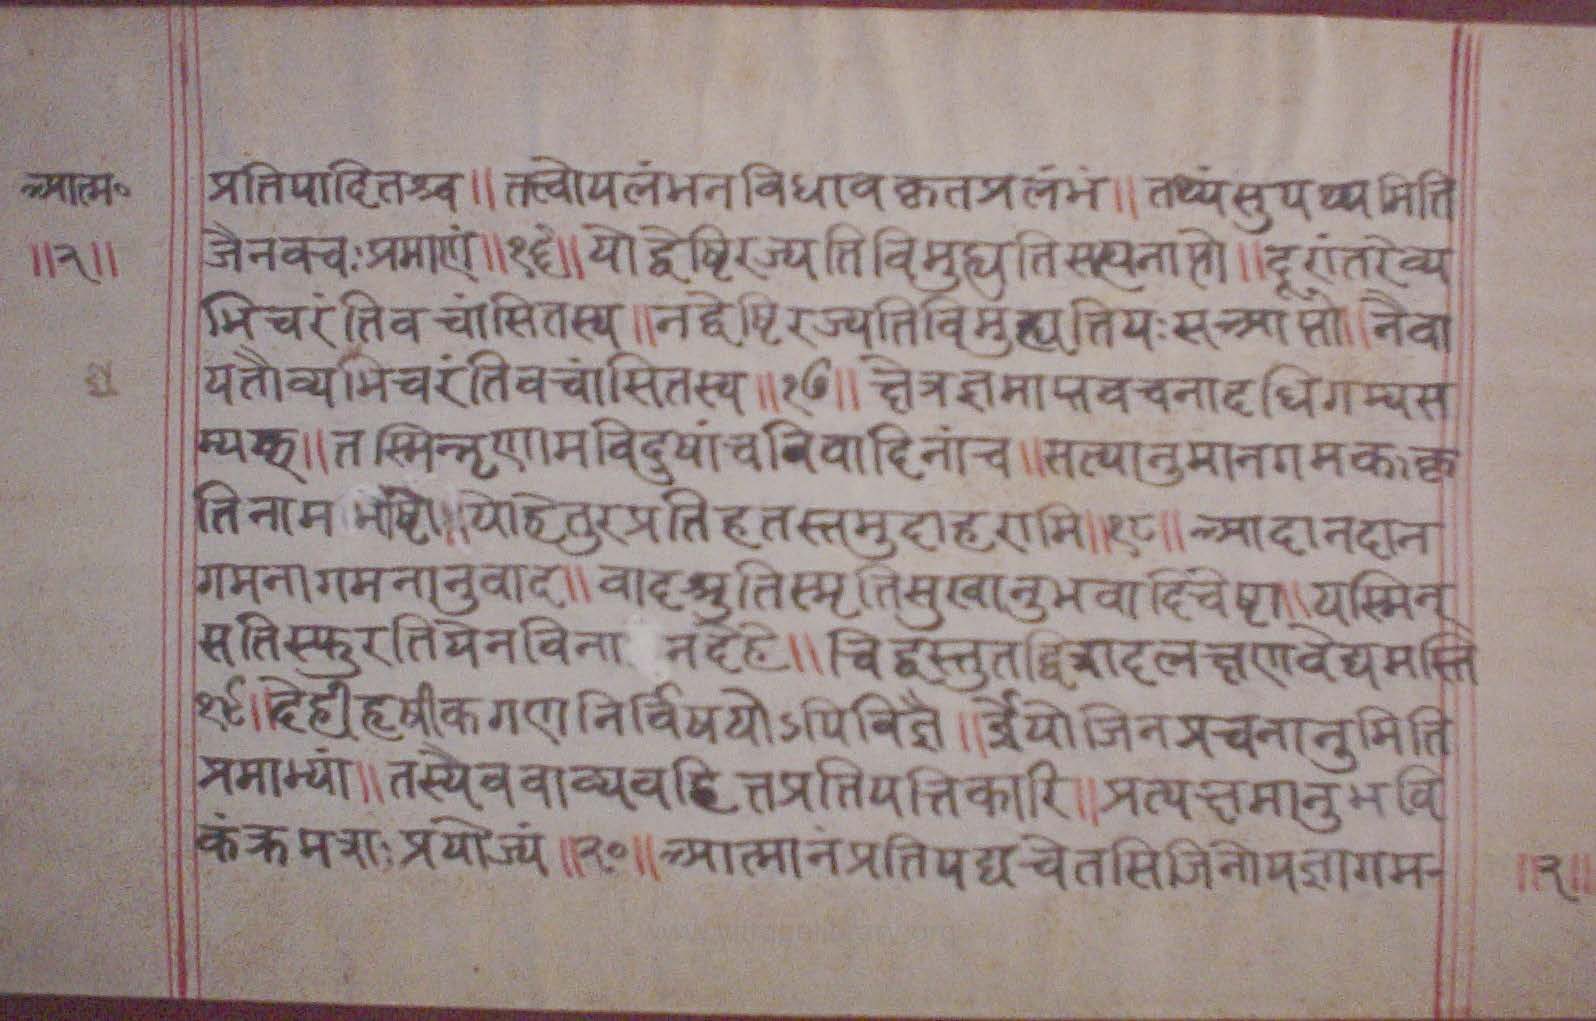 आत्म॰ प्रतिपादितश्च ॥ तत्त्वोपलंभनविधावकृतप्रलंभं ॥ तथ्यं सुपथ्यमिति
॥२॥ जैनवचः प्रमाणं ॥१६॥ यो द्वेष्टि रज्यति विमुह्यति सस्यनाप्तो ॥ दूरांतरे व्य
भिचरंति वचांसि तस्य ॥ न द्वेष्टि रज्यति विमुह्यति यः स आप्तो ॥ नैवा
यतौ व्यभिचरंति वचांसि तस्य ॥१७॥ क्षेत्रज्ञमाप्तवचनादधिगम्य स
म्यक् ॥ तस्मिन्नृणामविदुषां च विवादिनां च ॥ सत्यानुमानगमकः कृ
तिनामभीष्टो ॥ यो हेतुरप्रतिहतस्तमुदाहरामि ॥१८॥ आदानदान
गमनागमनानुवाद ॥ वादश्रुतिस्मृतिसुखानुभवादिचेष्टा ॥ यस्मिन्
सति स्फुरति येन विना न देहे ॥ चिद्वस्तु तद्विशदलक्षणवेद्यमस्ति
१९॥ देही हृषीकगणनिर्विषयोऽपि विज्ञै ॥ र्ज्ञेयो जिनप्रवचनानुमिति
प्रमाभ्यां ॥ तस्यैव वाव्यवहितप्रतिपत्तिकारि ॥ प्रत्यक्षमानुभवि
कं क्रमशः प्रयोज्यं ॥२०॥ आत्मानं प्रतिपद्य चेतसि जिनोपज्ञागम- ॥२॥